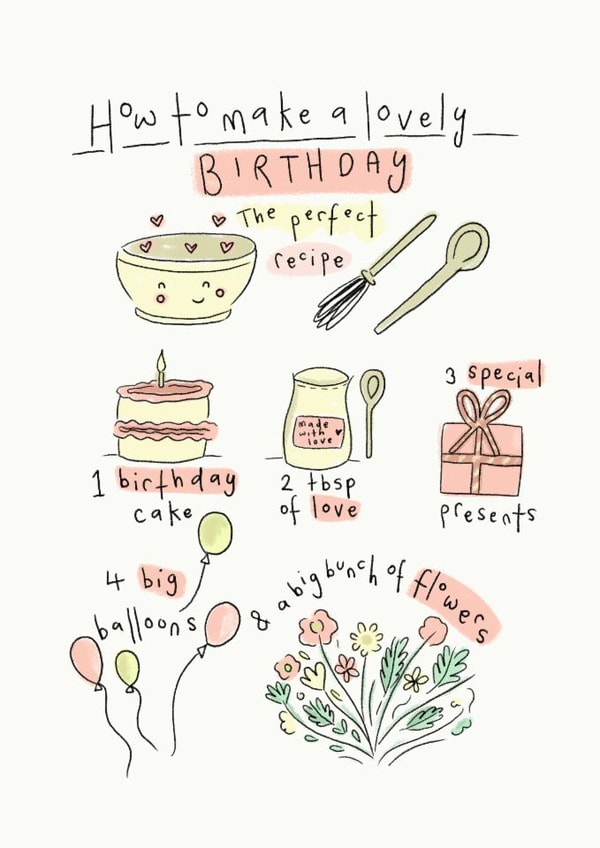 How to make a lovely
BIRTHDAY
The perfect
recipe
made
with
love
1 birthday
cake
2 tbsp
of love
3 special
presents
4 big
balloons
& a big bunch of flowers